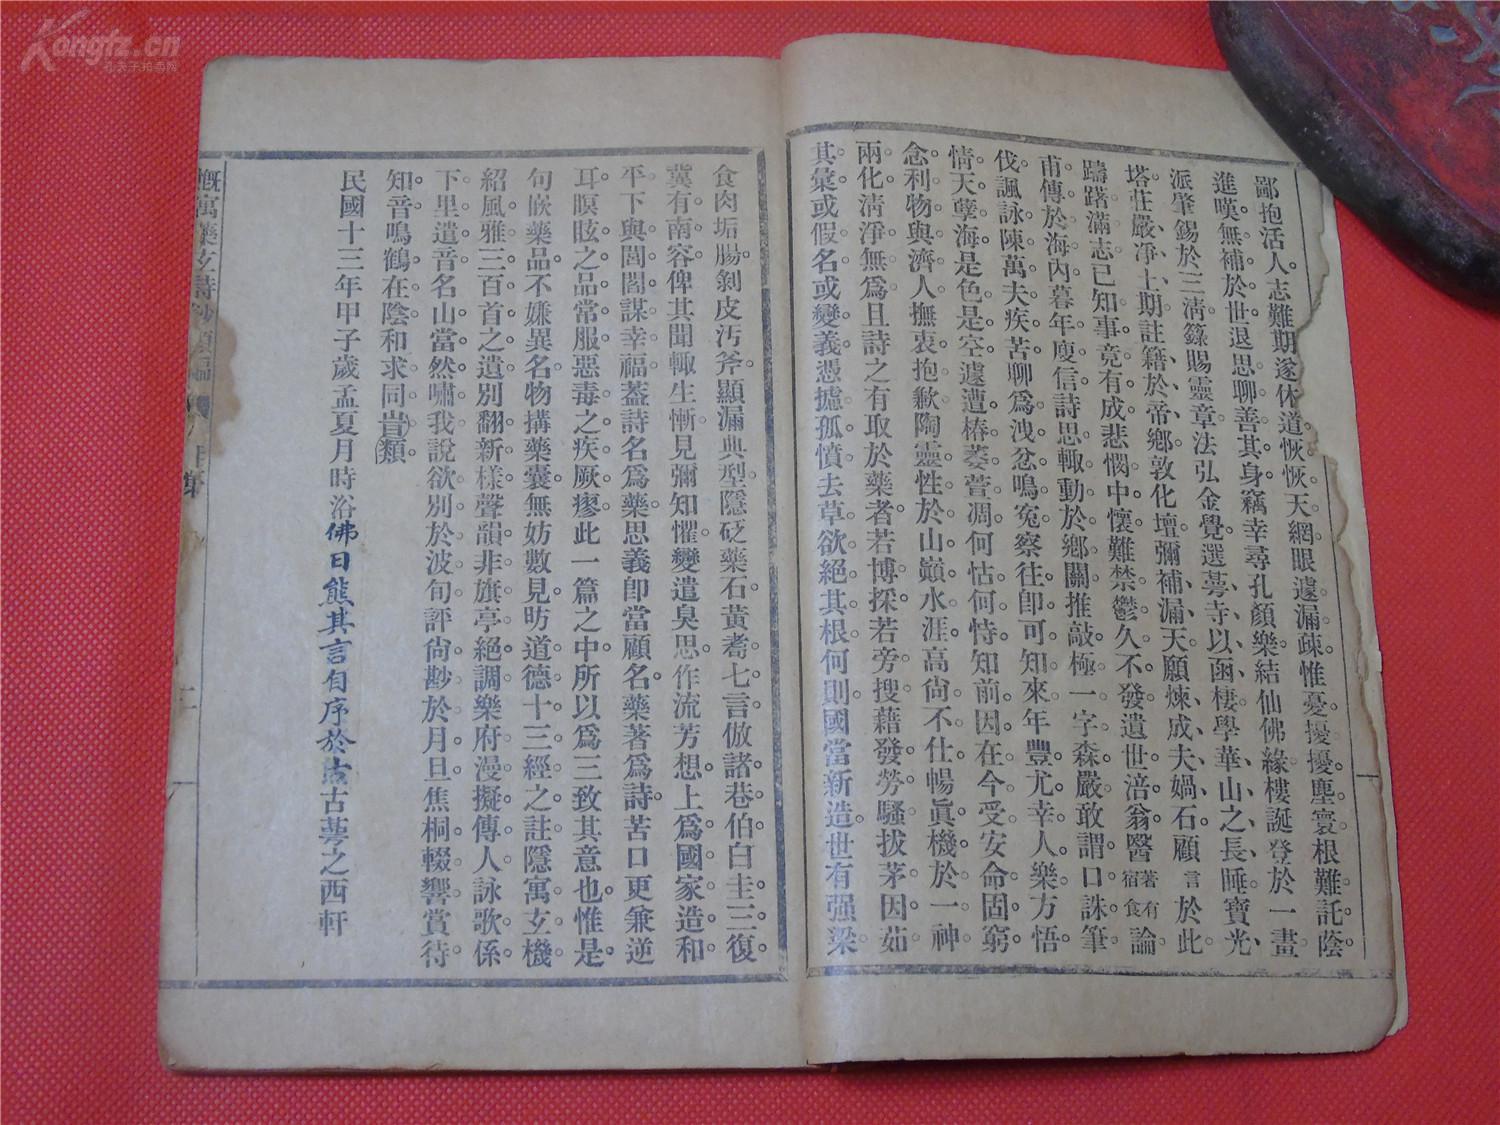 鄙抱活人志難期遂休道恢恢天網眼遽漏疎惟憂擾擾塵寰根難託蔭
進嘆無補於世退思聊善其身竊幸尋孔顏樂結仙佛緣樓誕登於一畫
派肇錫於三淸籙賜靈章法弘金覺選蕚寺以函棲學華山之長睡寶光
塔莊嚴淨土期註籍於帝鄉敦化壇彌補漏天願煉成夫媧石顧言於此
躊躇滿志已知事竟有成悲憫中懷難禁鬱久不發遺世涪翁醫著有宿食論
甫傳於海內暮年庾信詩思輙動於鄉關推敲極一字森嚴敢謂口誅筆
伐諷詠陳萬夫疾苦聊爲洩忿鳴寃察往卽可知來年豐尤幸人樂方悟
情天孽海是色是空遽遭椿萎萱凋何怙何恃知前因在今受安命固窮
念利物與濟人撫衷抱歉陶靈性於山巔水涯高尙不仕暢眞機於一神
兩化淸淨無爲且詩之有取於藥者若博採若旁搜藉發勞騷拔茅因茹
其彙或假名或變義憑攄孤憤去草欲絕其根何則國當新造世有强梁
食肉垢腸剝皮汚斧顯漏典型隱砭藥石黃耈七言倣諸巷伯白圭三復
冀有南容俾其聞輙生慚見彌知懼變遺臭思作流芳想上爲國家造和
平下與閭閻謀幸福葢詩名爲藥思義卽當顧名藥著爲詩苦口更兼逆
耳瞑眩之品常服惡毒之疾厥瘳此一篇之中所以爲三致其意也惟是
句嵌藥品不嫌異名物搆藥囊無妨數見昉道德十三經之註隱寓玄機
紹風雅三百首之遺別翻新樣聲韻非旗亭絕調樂府漫擬傳人詠歌係
下里遣音名山當然嘯我說欲別於波旬評尙尠於月旦焦桐輟響賞待
知音鳴鶴在陰和求同類
民國十三年甲子歲孟夏月時浴佛日熊其言自序於古蕚之西軒
慨寓藥玄詩鈔